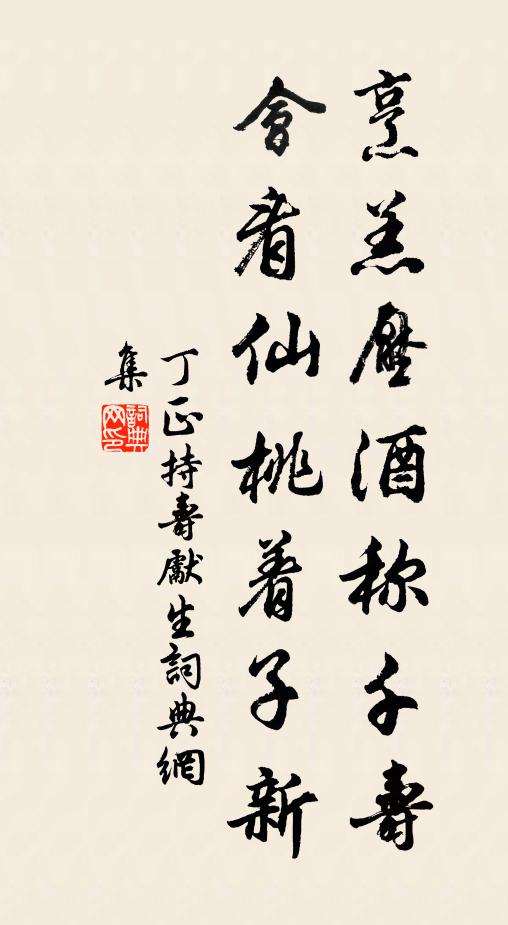 烹羔壓酒称千壽
會看仙桃着子新
丁正持壽獻生詞典網
集
詞典网印